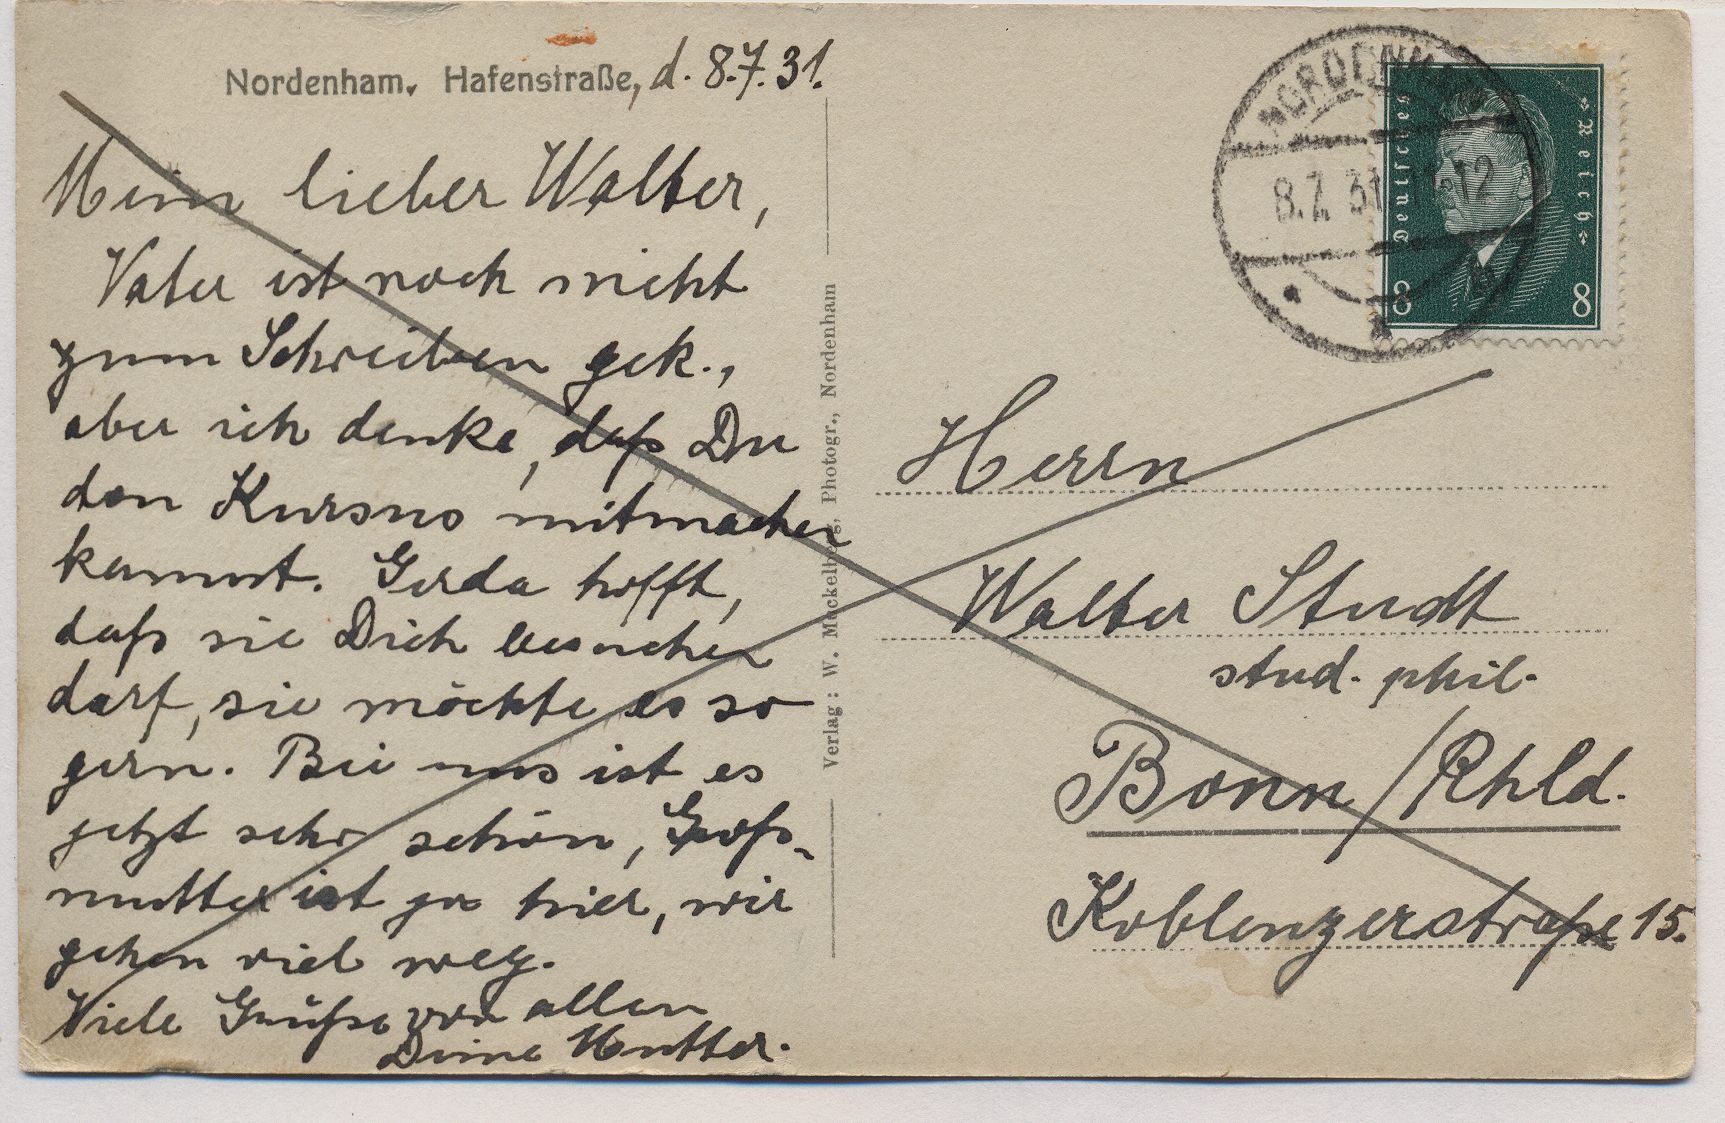 Nordenham, Hafenstraße, d. 8.7.31.
Mein lieber Walter,
Vater ist noch nicht
zum Schreiben gek.,
aber ich denke, daß Du
den Kursus mitmachen
kannst. Gerda hofft,
daß sie Dich besuchen
darf, sie möchte es so
gern. Bei uns ist es
jetzt sehr schön, Groß-
mutter ist ja hier, wir
gehen viel weg.
Viele Grüße von allen
Deine Mutter.
Verlag: W. Mackelberg, Photogr., Nordenham
NORDENHAM
8.7.31 12
b
Deutsches Reich
8 8
Herrn
Walter Studt
stud. phil.
Bonn/Rhld.
Koblenzerstraße 15.